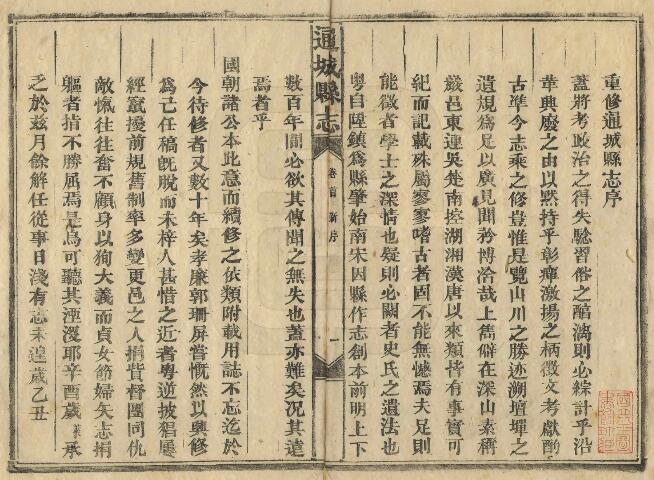 重修通城縣志序
蓋將考政治之得失騐習俗之醕漓則必綜計乎沿
革興廢之由以黙持乎彰癉激揚之柄徵文考獻酌
古準今志乘之修豈惟是覽山川之勝迹溯壇墠之
遺規爲足以廣見聞矜博洽哉上雋僻在深山素稱
巖邑東連吳楚南控湖湘漢唐以來類皆有事實可
紀而記載殊屬寥寥嗜古者固不能無憾焉夫足則
能徵者學士之深情也疑則必闕者史氏之遺法也
粤自陞鎮爲縣肇始南宋因縣作志創本前明上下
通城縣志
卷首 新序
一
數百年間必欲其傳聞之無失也蓋亦難矣況其遠
焉者乎
國朝諸公本此意而續修之依類附載用誌不忘迄於
今待修者又數十年矣孝廉郭珊屏嘗慨然以興修
爲己任稿旣脫而未梓人甚惜之近者粤逆披猖屢
經竄擾前規舊制率多變更邑之人捐貲督團同仇
敵愾往往奮不顧身以狥大義而貞女節婦矢志捐
軀者指不勝屈焉是烏可聽其湮沒耶辛酉歲某承
乏於兹月餘解任從事日淺有志未遑歲乙丑